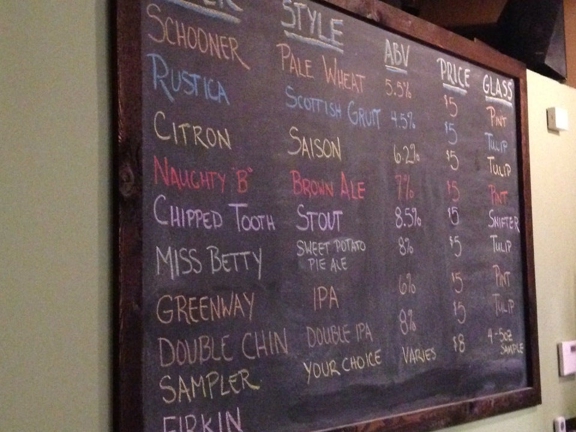 BEER STYLE ABV PRICE GLASS
SCHOONER PALE WHEAT 5.5% $5 PINT
RUSTICA SCOTTISH GRUIT 4.5% $5 TULIP
CITRON SAISON 6.2% $5 TULIP
NAUGHTY "B" BROWN ALE 7% $5 PINT
CHIPPED TOOTH STOUT 8.5% $5 SNIFTER
MISS BETTY SWEET POTATO PIE ALE 8% $5 TULIP
GREENWAY IPA 6% $5 PINT
DOUBLE CHIN DOUBLE IPA 8% $5 TULIP
SAMPLER YOUR CHOICE VARIES $8 4-5OZ SAMPLE
FIRKIN